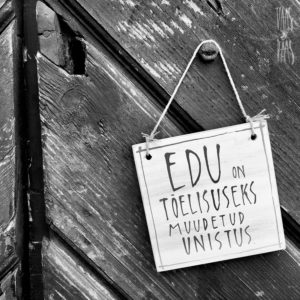 EDU ON
TÕELISUSEKS
MUUDETUD
UNISTUS.